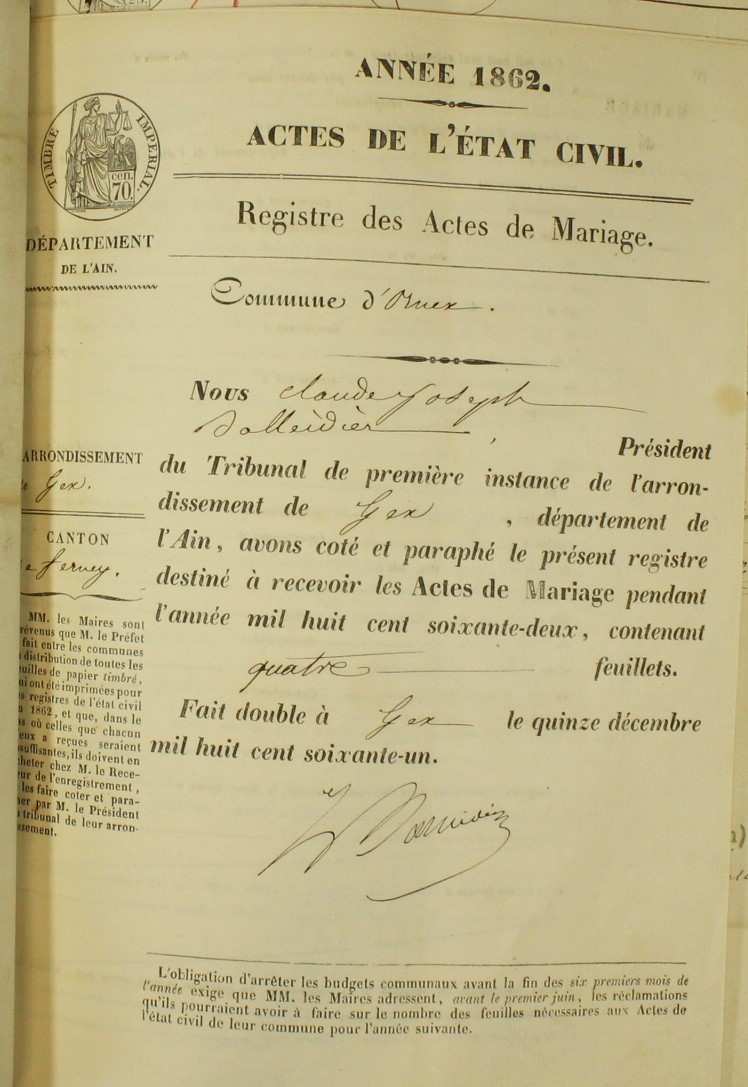 ANNÉE 1862.
ACTES DE L'ÉTAT CIVIL.
TIMBRE IMPERIAL.
cen.
70.
DÉPARTEMENT
DE L'AIN.
Registre des Actes de Mariage.
Commune d'Ornex.
Nous Claude Joseph
, Président
du Tribunal de première instance de l'arron-
dissement de Gex , département de
l'Ain, avons coté et paraphé le présent registre
destiné à recevoir les Actes de Mariage pendant
l'année mil huit cent soixante-deux, contenant
quatre feuillets.
Fait double à Gex le quinze décembre
mil huit cent soixante-un.
ARRONDISSEMENT
e Gex.
CANTON
e Ferney.
MM. les Maires sont
révenus que M. le Préfet
fait entre les communes
distribution de toutes les
uilles de papier timbré,
ui ont été imprimées pour
s registres de l'état civil
n 1862, et que, dans le
s où celles que chacun
eux a reçues seraient
suffisantes, ils doivent en
cheter chez M. le Rece-
ur de l'enregistrement,
les faire coter et para-
her par M. le Président
tribunal de leur arron-
ssement.
L'obligation d'arrêter les budgets communaux avant la fin des six premiers mois de
l'année exige que MM. les Maires adressent, avant le premier juin, les réclamations
qu'ils pourraient avoir à faire sur le nombre des feuilles nécessaires aux Actes de
l'état civil de leur commune pour l'année suivante.